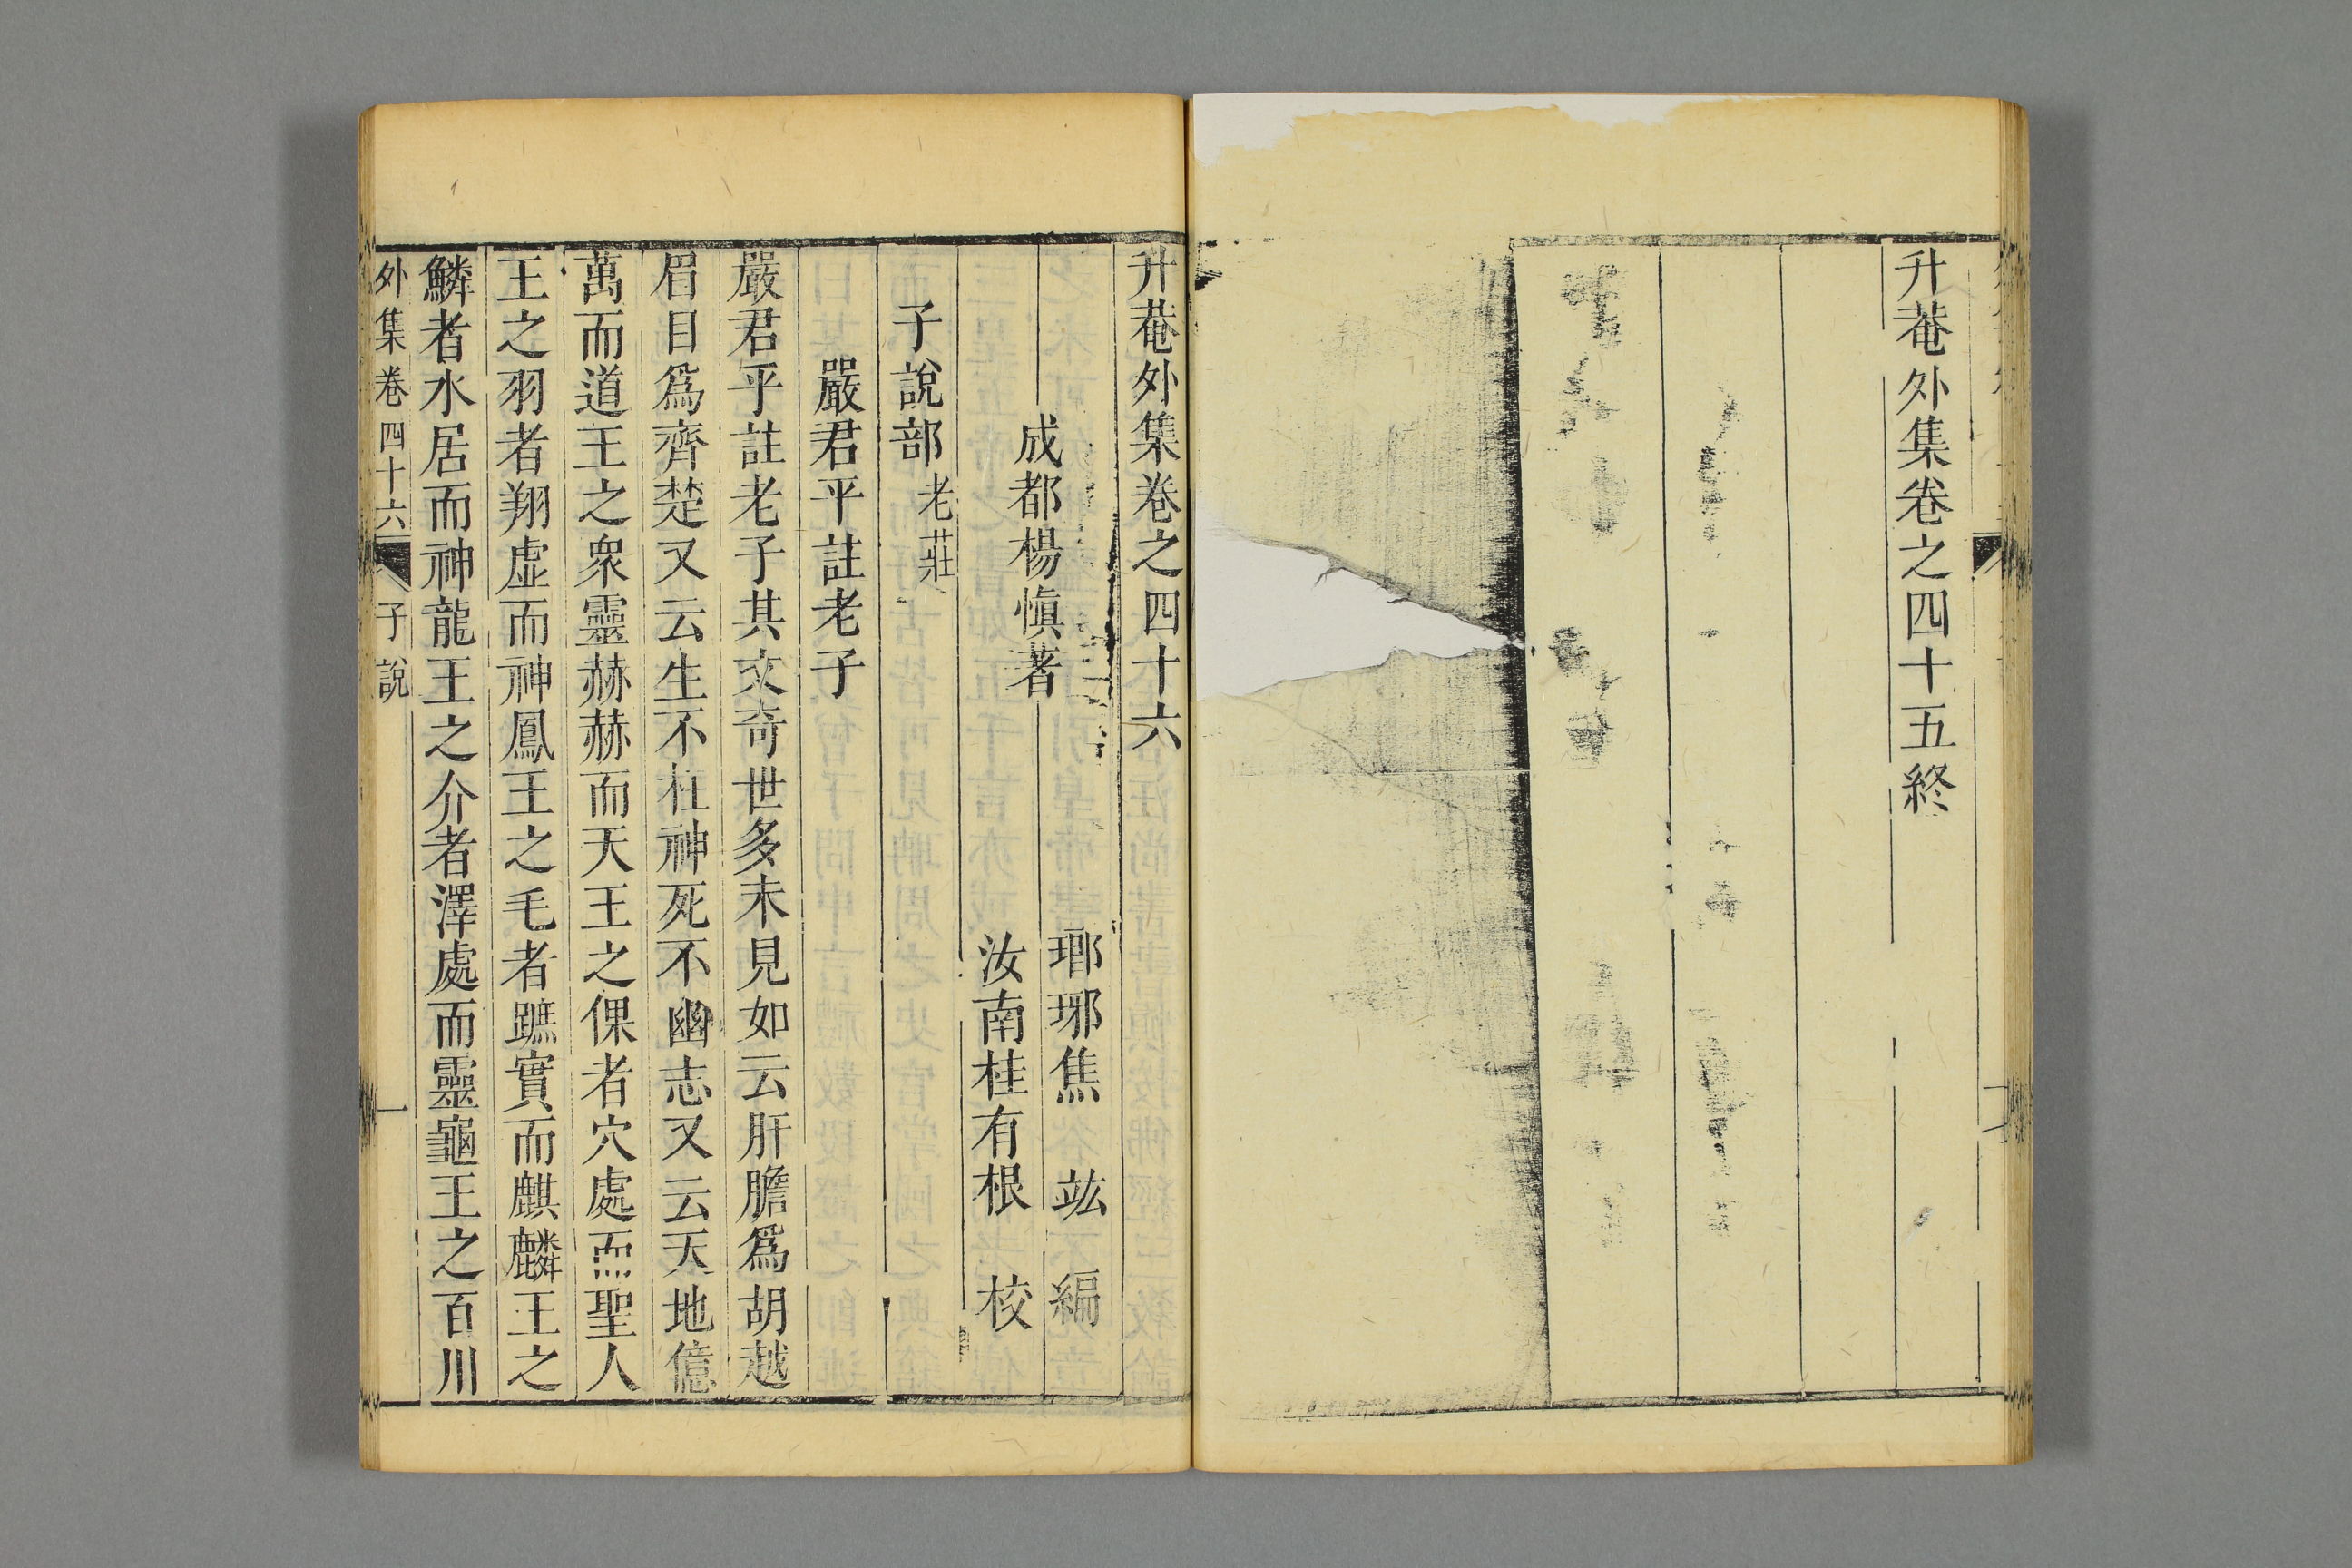 升菴外集卷之四十五終
升菴外集卷之四十六
成都楊愼著
瑯琊焦竑編
汝南桂有根校
子說部老莊
嚴君平註老子
嚴君平註老子其文奇世多未見如云肝膽爲胡越
眉目爲齊楚又云生不柱神死不幽志又云天地億
萬而道王之衆靈赫赫而天王之倮者穴處而聖人
王之羽者翔虛而神鳳王之毛者蹠實而麒麟王之
鱗者水居而神龍王之介者澤處而靈龜王之百川
外集卷四十六 子說 一